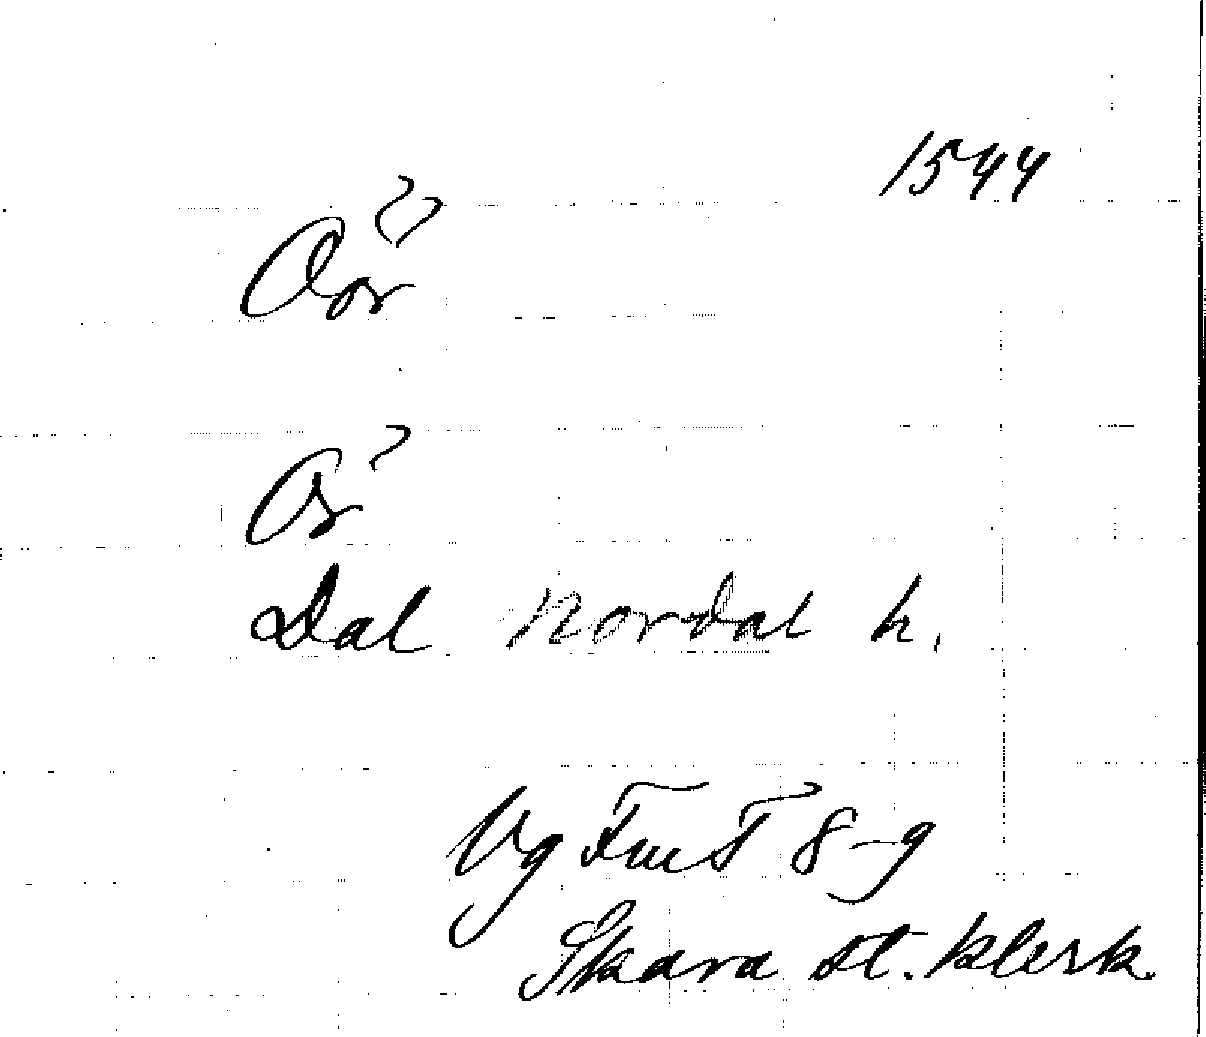 1544
Ör
Dal Nordal h.
Vg FmT 8-9
Skara st. klerk.